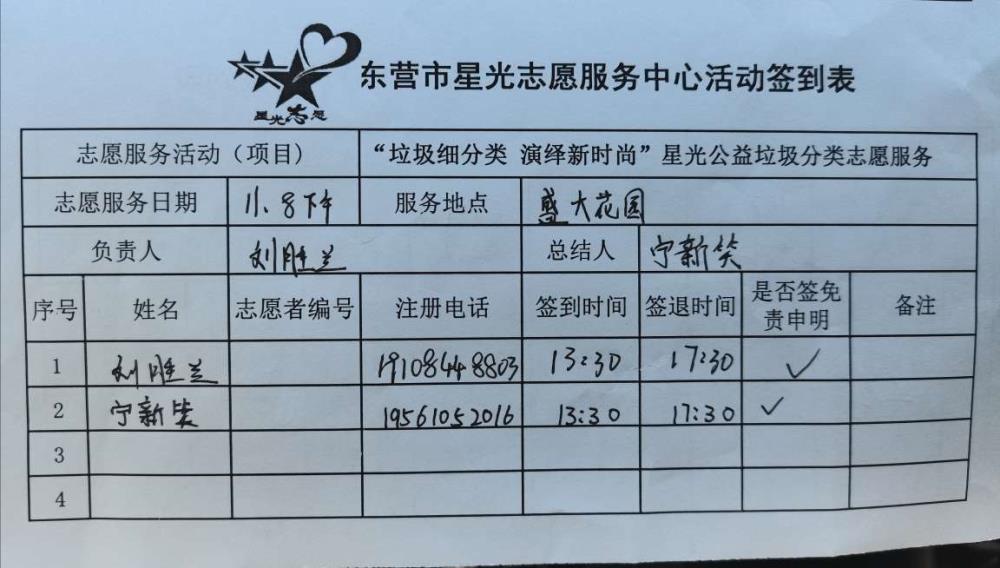 东营市星光志愿服务中心活动签到表
星光志愿
志愿服务活动（项目） “垃圾细分类 演绎新时尚”星光公益垃圾分类志愿服务
志愿服务日期 11.8下午 服务地点 盛大花园
负责人 刘胜兰 总结人 宁新笑
序号 姓名 志愿者编号 注册电话 签到时间 签退时间 是否签免责申明 备注
1 刘胜兰 19108448803 13:30 17:30 ✓
2 宁新笑 19561052016 13:30 17:30 ✓
3
4